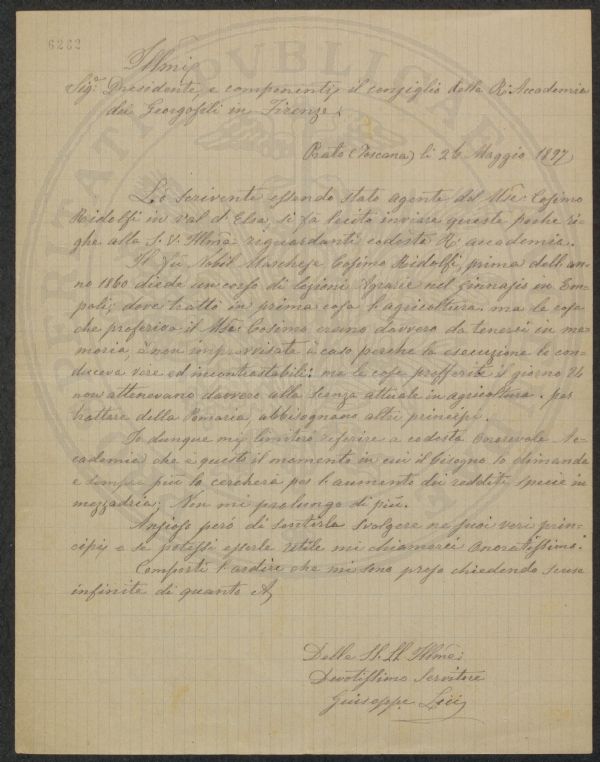 6282
Illmi
Sig.ri Presidente, e componenti il consiglio della R. Accademia
dei Georgofili in Firenze.
Prato (Toscana) li 26 Maggio 1897
Lo Scrivente essendo stato agente del Mse. Cosimo
Ridolfi in val d'Elsa, si fa lecito inviare queste poche ri-
ghe alla S. V. Illma riguardanti codesta R. accademia.
Il fù Nobil Marchese Cosimo Ridolfi, prima dell'an-
no 1860 diede un corso di lezioni Agrarie nel ginnasio in Em-
poli; dove trattò in prima cosa l'agricoltura. ma le cose
che proferiva il Mse. Cosimo erano davvero da tenersi in me-
moria, e non improvvisate a caso perche la esecuzione le con-
duceva vere ed incontrastabili: ma le cose profferite il giorno 24
non attenevano davvero alla Scenza attuale in agricoltura. per
trattare della Pomaria, abbisognano altri principi.
Io dunque mi limiterò riferire a codesta Onorevole Ac-
cademia che è questo il momento in cui il bisogno lo dimanda
e sempre più lo cercherà per l'aumento dei redditi, specie in
mezzadria. Non mi prolungo di più.
Ansioso però di sentirla svolgere ne suoi veri prin-
cipi, e se potessi esserle utile mi chiamerei Onoratissimo.
Comporti l'ardire che mi sono preso chiedendo scuse
infinite di quanto
Delle SS. LL. Illme:
Devotissimo Servitore
Giuseppe